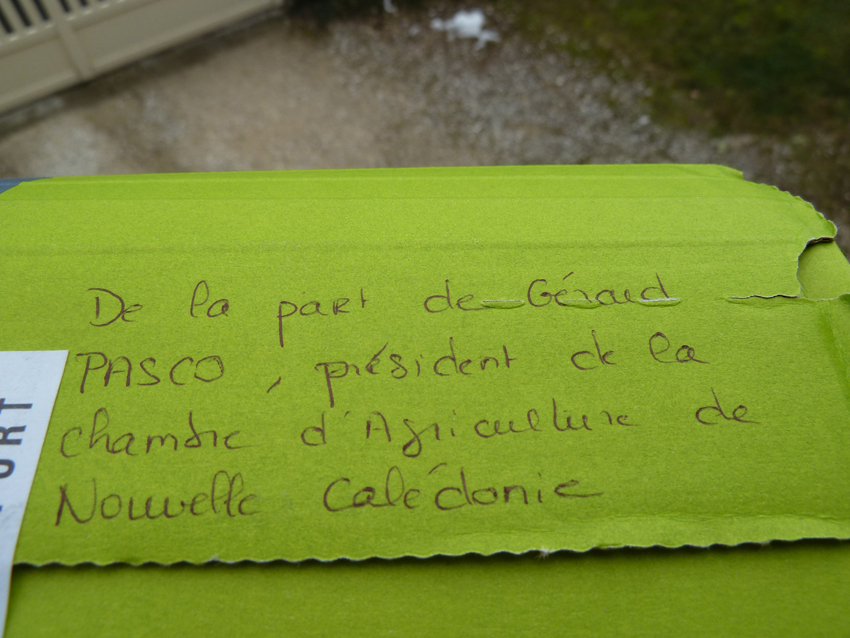 De la part de Gérard
PASCO, président de la
chambre d'Agriculture de
Nouvelle Calédonie